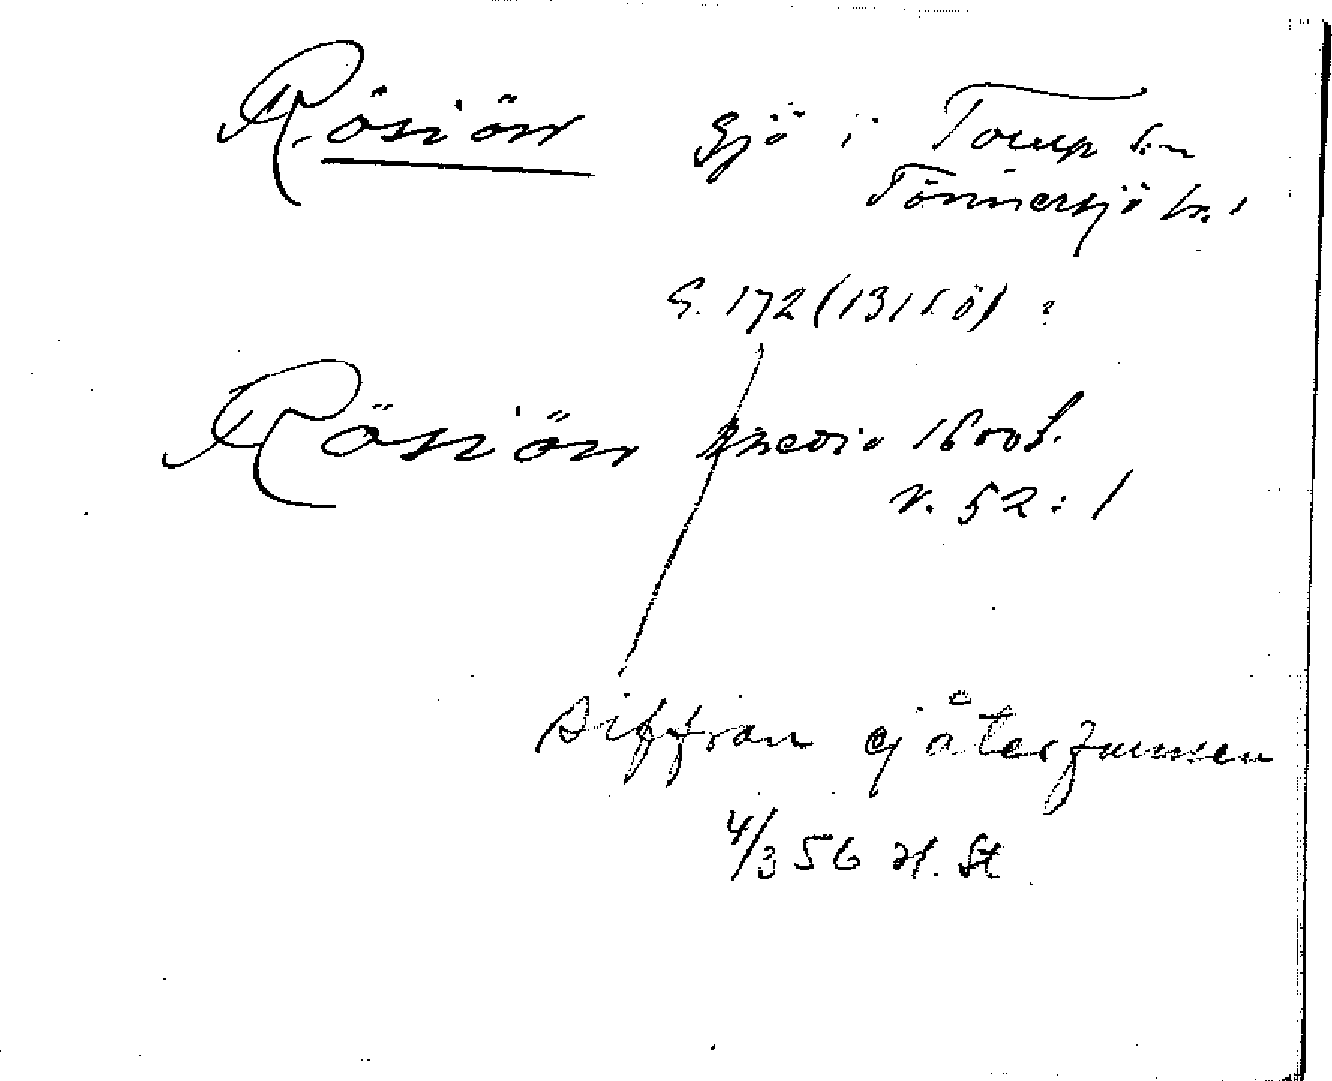 Rösiön Sjö i Torup sn
Tönnersjö hd
S. 172 (131 s.ö) :
Rösiön medio 1600 t.
v. 52 : 1
Siffran ej återfunnen
4/3 56 H. St